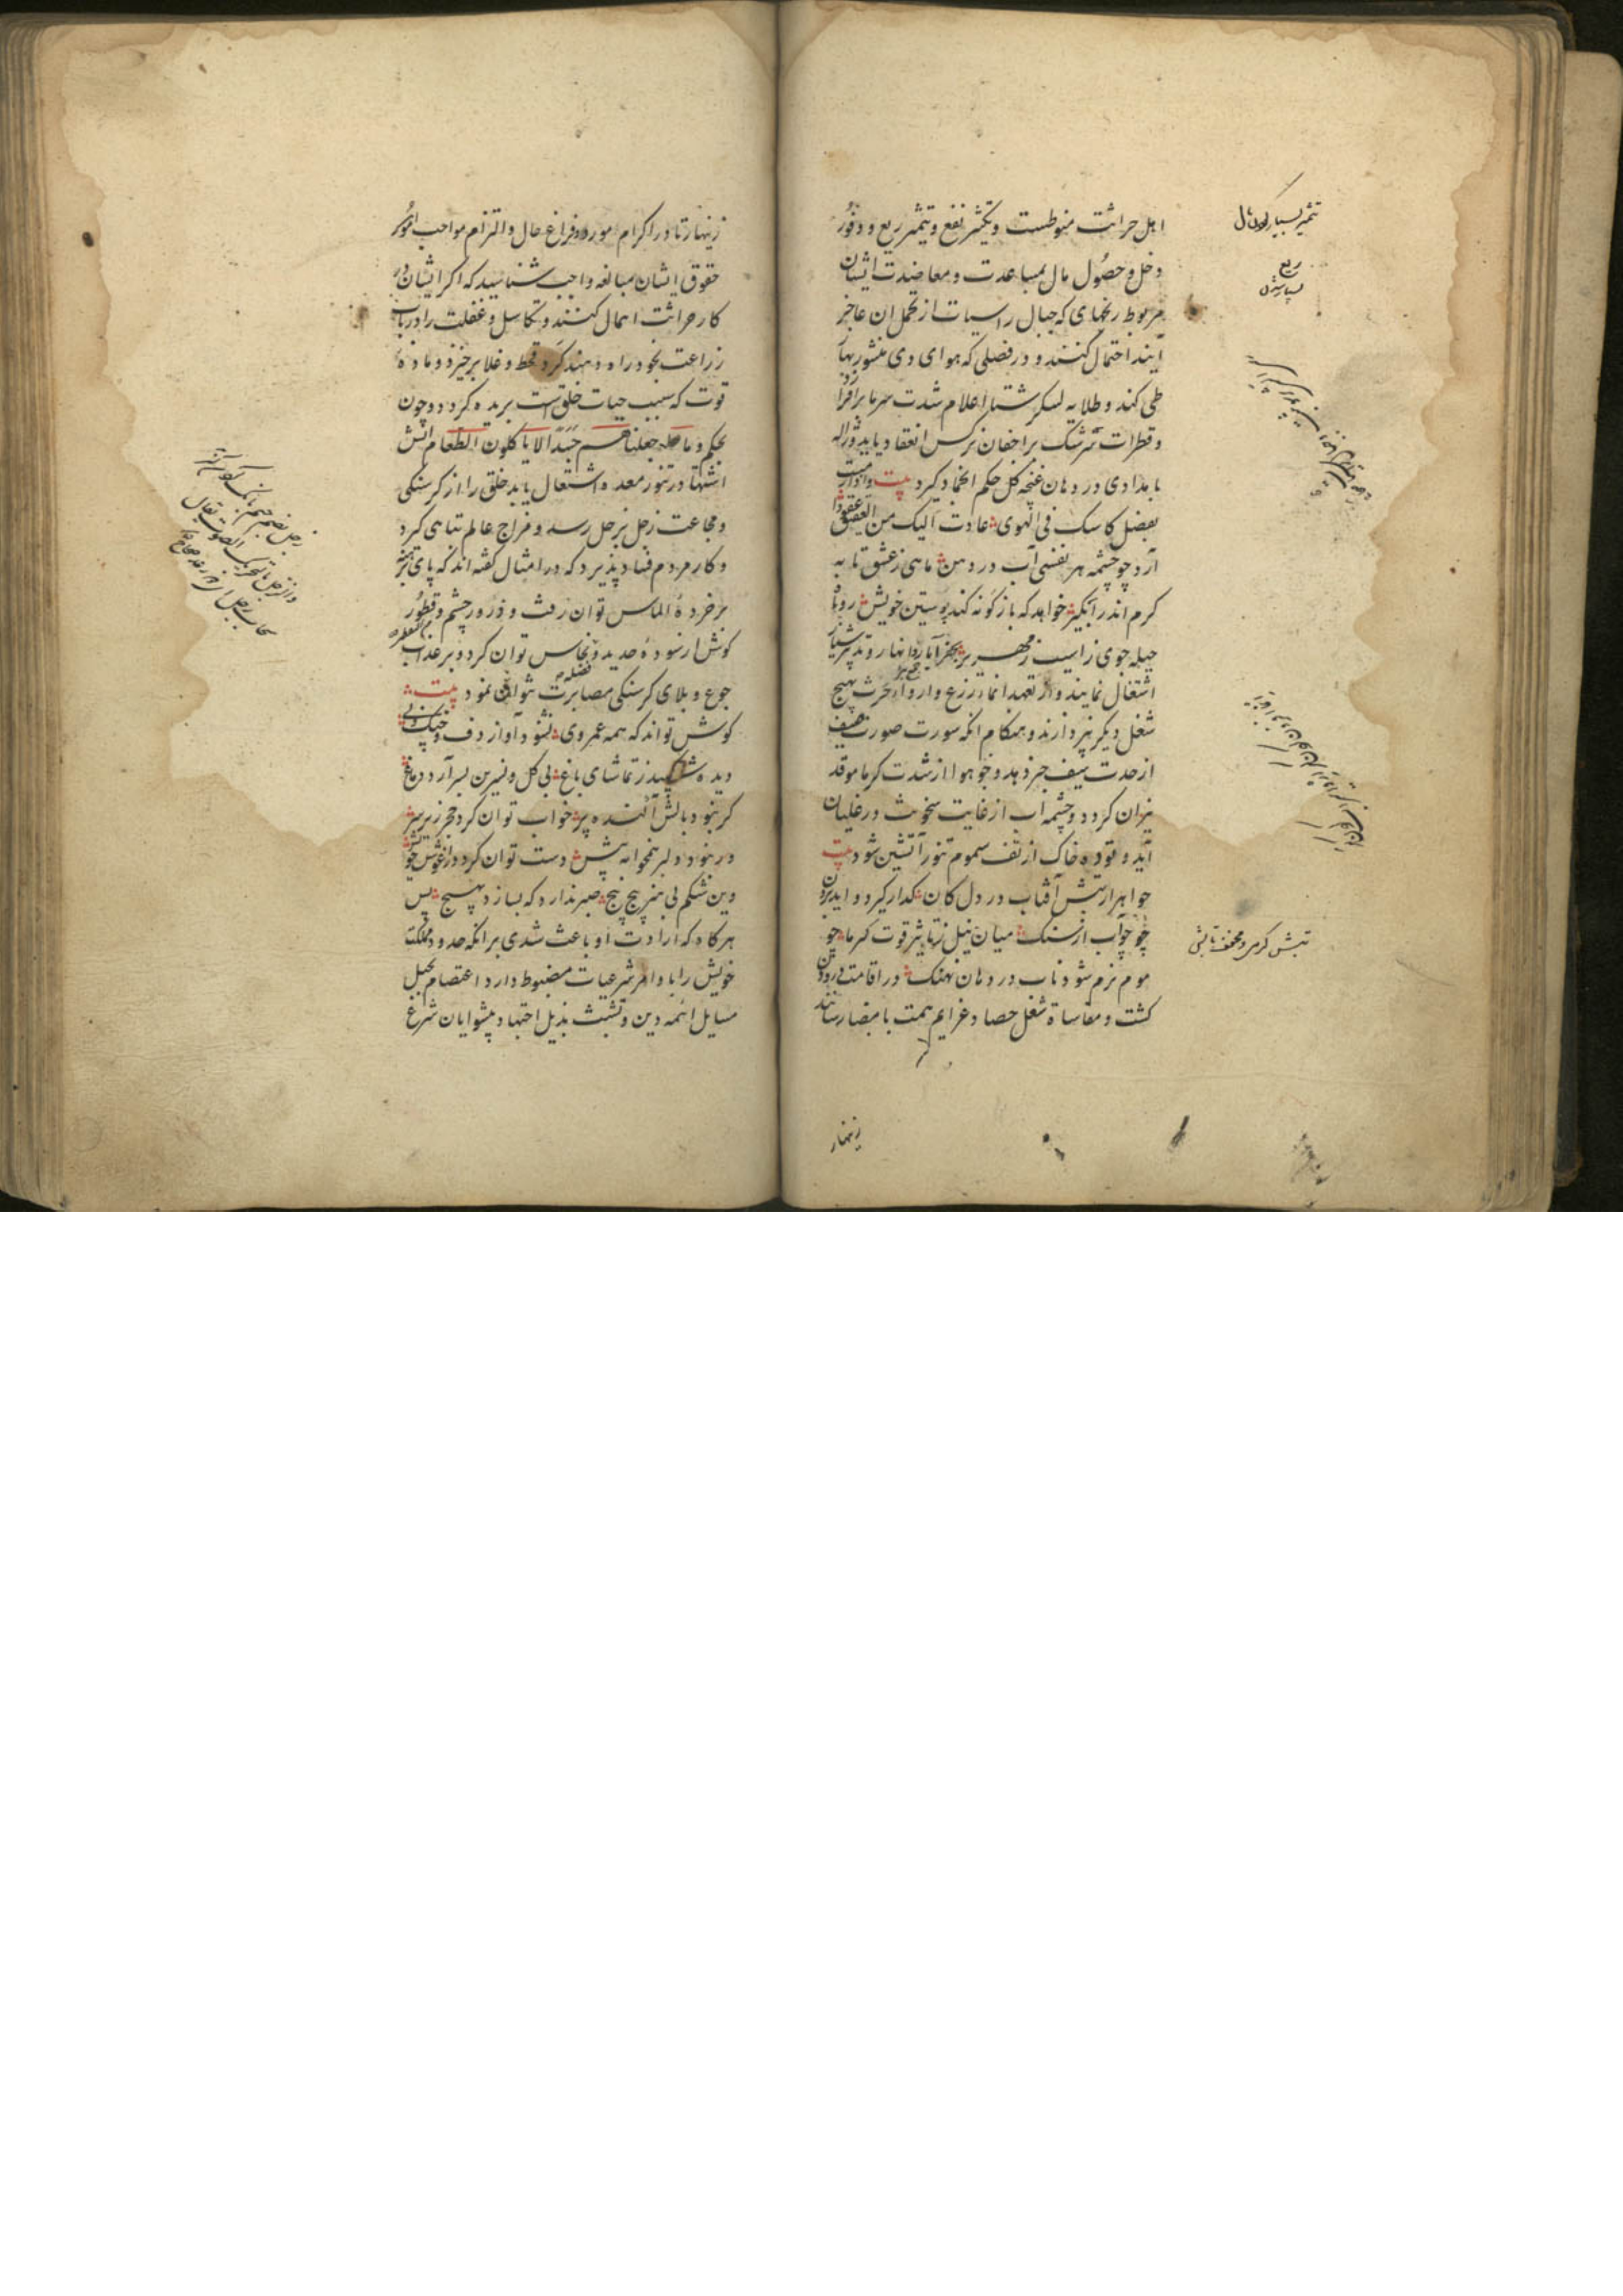 اهل حراثت منوطست و تکثیر نفع و تثمیر ریع و وفور
دخل و حصول مال بمساعدت و معاضدت ایشان
مربوط رنجهای که جبال راسیات از تحمل ان عاجز
آیند احتمال کنند و در فصلی که هوای دی منشور بهار
طی کند و طلایه لشکر شتا اعلام شدت سرما برافرازد
و قطرات سرشک بر اجفان نرکس انعقاد یابد و ژاله
بامدادی در دهان غنچه کل حکم انجماد کیرد بیت
بفضل کاسک فی الهوی عادت الیک من العقیق عقودا
آرد چو چشمه هر نفسی آب در دهن ماهی ز عشق تابه
کرم اندر آبکیر خواهد که بازکونه کند پوستین خویش روباه
حیله جوی ز آسیب زمهریر بحفر آبار و انهار و تدبیر شیار
اشتغال نمایند و از تعهد انماء زرع و ارواء حرث بهیچ
شغل دیکر نپردازند و هنکام انکه سورت صورت صیف
از حدت سیف خبر دهد و جو هوا از شدت کرما موقد
نیران کردد و چشمه اب از غایت سخونت در غلیان
آید و توده خاک از تف سموم تنور آتشین شود بیت
جواهر از تبش آفتاب در دل کان کداز کیرد و اید برون
چو آب از سنک میان نیل ز تاثیر قوت کرما چو
موم نرم شود ناب در دهان نهنک در اقامت
کشت و مقاساة شغل حصاد عزایم همت بامضا رسانند
زنهار
تثمیر بسیار کردن مال
ریع
تبش کرمی و مخفف تابش
زنهار تا در اکرام مورد و فراغ حال و التزام مواجب
حقوق ایشان مبالغه واجب شناسید که اکر ایشان در
کار حراثت اهمال کنند و تکاسل و غفلت را در باب
زراعت بخود راه دهند کرد قحط و غلا برخیزد و ماده
قوت که سبب حیات خلق است بریده کردد و چون
بحکم و ما جعلناهم جسدا لا یاکلون الطعام اتش
اشتها در تنور معده اشتعال یابد خلق را از کرسنکی
و مجاعت زجل بزحل رسد و مزاج عالم تباهی کیرد
و کار مردم فساد پذیرد که در امثال کفته اند که پای برهنه
بر خرده الماس توان رفت و ذرور چشم و قطور
کوش از سوده حدید و نحاس توان کرد و بر عذاب
جوع و بلای کرسنکی مصابرت نتوان نمود بیت
کوش تواند که همه عمر وی نشنود آواز دف و چنک و نی
دیده شکیبد ز تماشای باغ بی کل و نسرین بسر آرد دماغ
کر نبود بالش آکنده پر خواب توان کرد حجر زیر سر
ور نبود دلبر همخوابه پیش دست توان کرد در آغوش خویش
وین شکم بی هنر پیچ پیچ صبر ندارد که بسازد بهیچ پس
هرکاه که ارادت او باعث شدی بر انکه حدود مملکت
خویش را با وامر شرعیات مضبوط دارد و اعتصام بحبل
مسایل ائمه دین و تشبث بذیل اجتهاد پیشوایان شرع